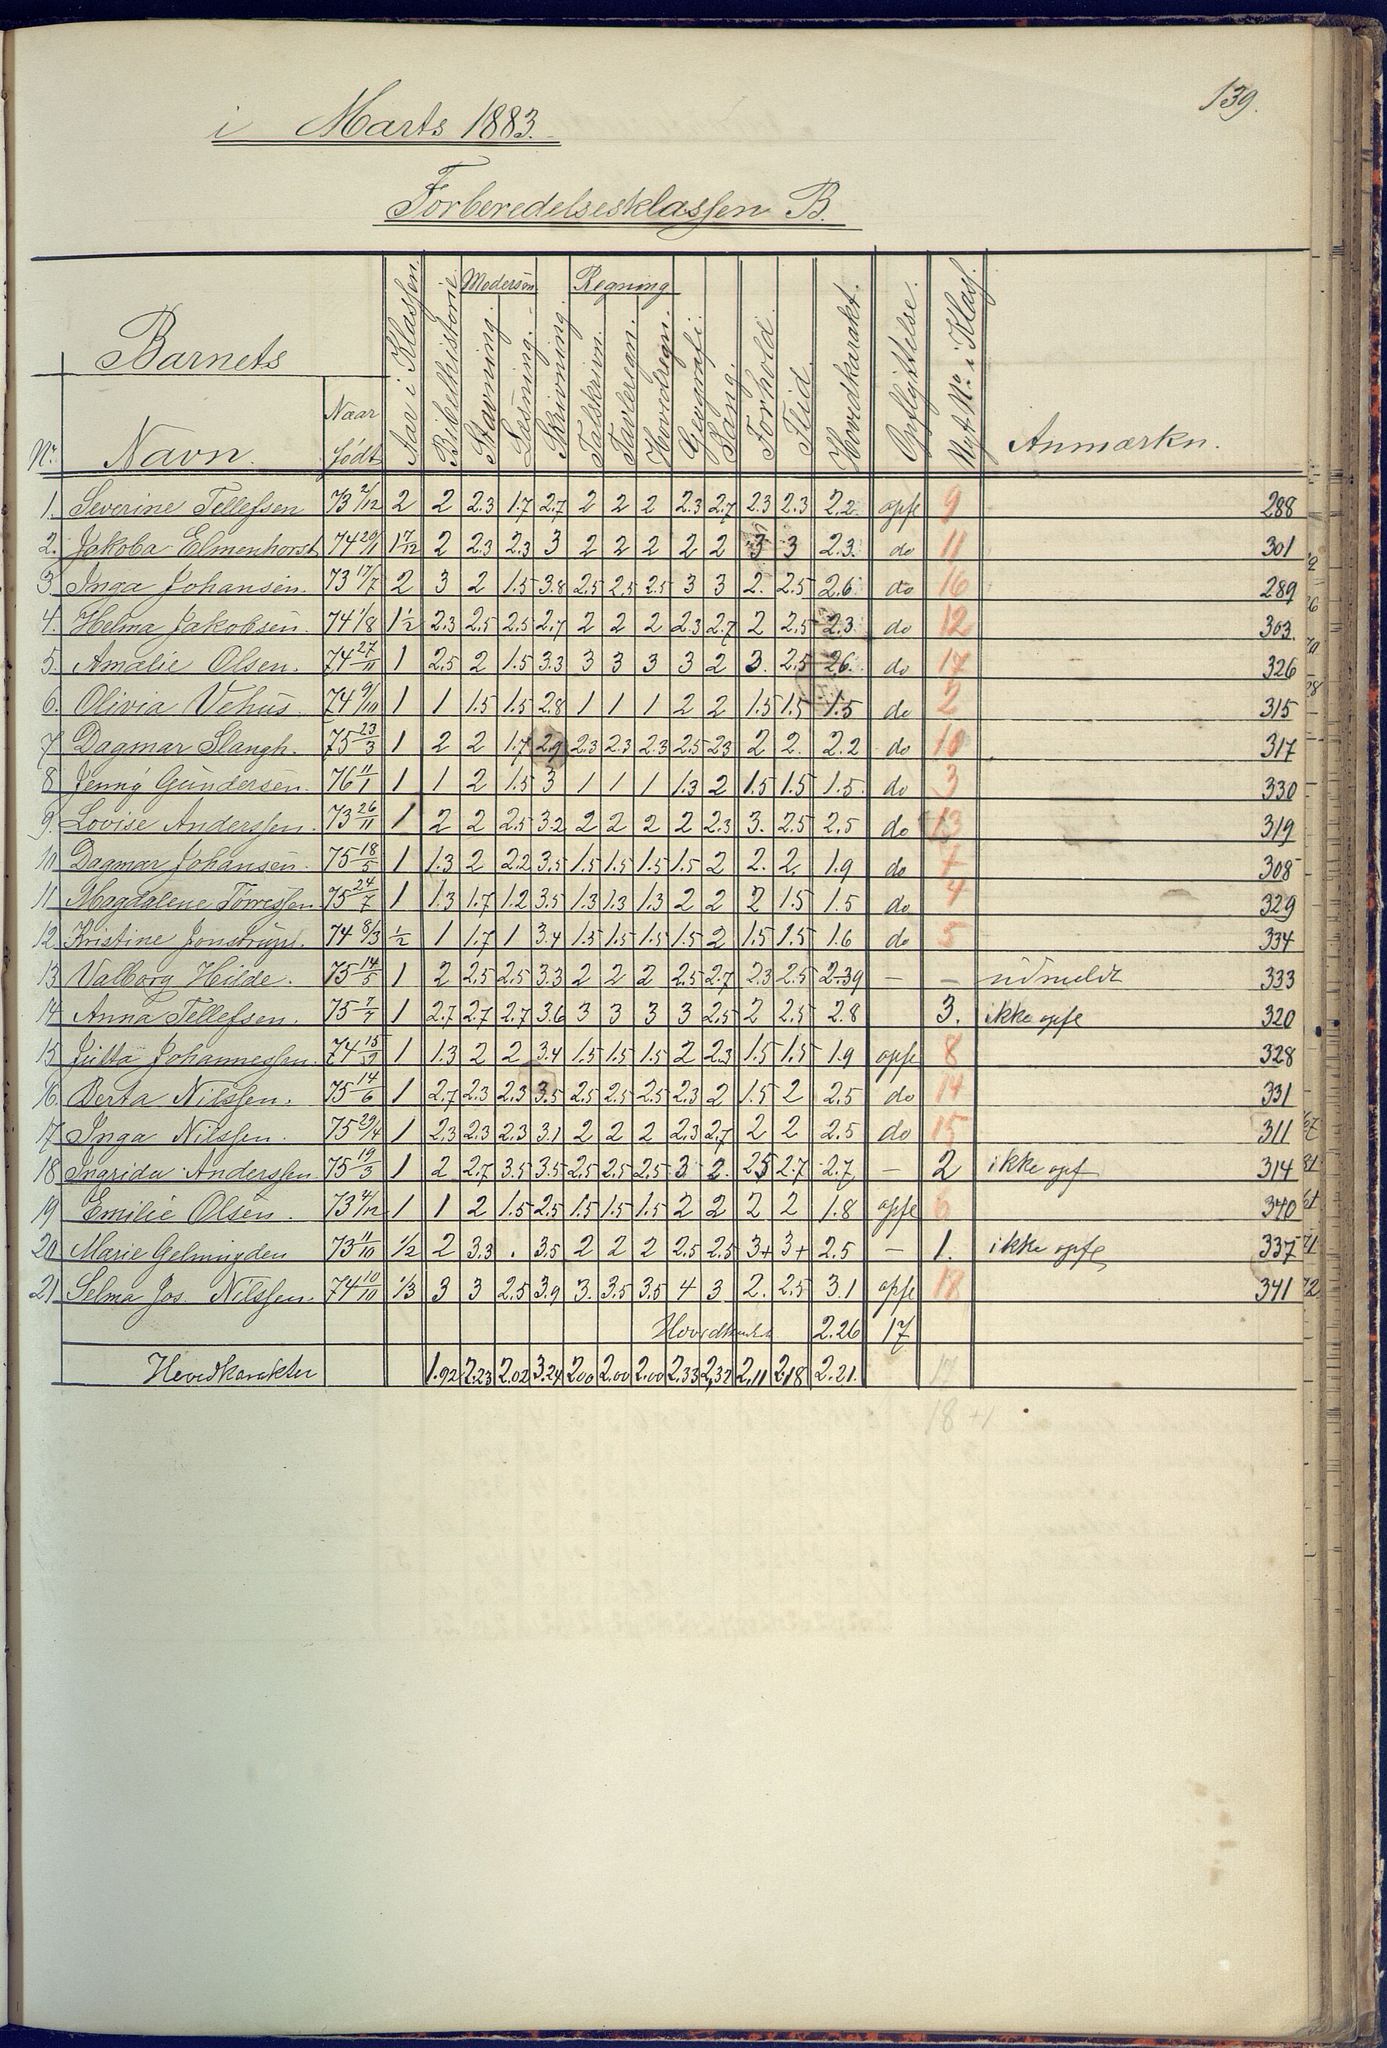 139.
i Marts 1883.
Forberedelsesklassen B.
Barnets Aar i Klassen. Bibelhistorie. Modersm Stavning. Læsning. Skrivning. Regning Talskrivn. Tavleregn. Hovedregn. Geografi. Sang. Forhold. Flid. Hovedkarakt. Opflyttelse. Nyt No. i Klas. Anmærkn.
No. Navn. Naar født
1. Severine Tellefsen 73 2/12 2 2 2.3 1.7 2.7 2 2 2 2.3 2.7 2.3 2.3 2.2 opfl 9 288
2. Jakoba Elmenhorst 74 20/11 1 7/12 2 2.3 2.3 3 2 2 2 2 2 3 3 2.3. do 11 301
3. Inga Johansen. 73 17/7 2 3 2 1.5 3.8 2.5 2.5 2.5 3 3 2. 2.5 2.6 do 16 289
4. Helma Jakobsen. 74 1/8 1 1/2 2.3 2.5 2.5 2.7 2 2 2 2.3 2.7 2 2.5 2.3. do 12 303.
5. Amalie Olsen. 74 27/11 1 2.5 2 1.5 3.3 3 3 3 3 2 3. 2.5 26. do 17 326
6. Olivia Vehus 74 9/10 1 1 1.5 1.5 2.8 1 1 1 2 2 1.5 1.5 1.5 do 2 315
7. Dagmar Slangh. 75 23/3 1 2 2 1.7 2.9 2.3 2.3 2.3 2.5 23 2 2. 2.2 do 10 317
8 Jenny Gundersen. 76 11/1 1 1 2 1.5 3 1 1 1 1.3 2 1.5 1.5 1.5. do 3 330
9. Lovise Anderssen. 73 26/11 1 2 2 2.5 3.2 2 2 2 2 2.3 3. 2.5 2.5 do 13 319
10. Dagmar Johansen. 75 18/5 1 1.3 2 2.2 3.5 1.5 1.5 1.5 1.5 2 2. 2. 1.9 do 7 308
11 Magdalene Tørressen. 75 24/7 1 1.3 1.7 1.2 3.5 1.3 1.3 1.3 2 2 2 1.5 1.5 do 4 329
12. Kristine Jonstrup. 74 8/3 1/2 1 1.7 1 3.4 1.5 1.5 1.5 1.5 2 1.5 1.5 1.6 do 5 334
13 Valborg Hilde. 75 14/5 1 2 2.5 2.5 3.3 2 2 2 2.5 2.7 2.3 2.5 2.39 — — udmeldt 333
14 Anna Tellefsen. 75 7/7 1 2.7 2.7 2.7 3.6 3 3 3 3 2.5 2 2.5 2.8 3. ikke opfl 320
15 Jutta Johannessen. 74 15/12 1 1.3 2 2 3.4 1.5 1.5 1.5 2 2.3 1.5 1.5 1.9 opfl 8 328
16. Berta Nilssen. 75 14/6 1 2.7 2.3 2.3 3.5 2.5 2.5 2.5 2.3 2 1.5 2 2.5 do 14 331
17 Inga Nilssen. 75 29/4 1 2.3 2.3 2.3 3.1 2 2 2 2.3 2.7 2 2 2.5 do 15 311
18 Ingrida Anderssen 75 19/3 1 2 2.7 3.5 3.5 2.5 2.5 2.5 3 2. 25 2.7 2.7 — 2 ikke opf 314
19 Emilie Olsen. 73 4/12 1 1 2 1.5 2.5 1.5 1.5 1.5 2 2 2 2 1.8 opfl 6 340
20 Marie Gelmingden 73 11/10 1/2 2 3.3 . 3.5 2 2 2 2.5 2.5 3+ 3+ 2.5 — 1. ikke opfl 337
21 Selma Jos. Nilssen. 74 10/10 1/3 3 3 2.5 3.9 3. 3.5 3.5 4 3 2. 2.5 3.1 opfl 18 341
2.26 17
Hovedkarakter 1.92 2.23 2.02 3.24 2.00 2.00 2.00 2.33 2.32 2.11 2.18 2.21. 17
18 +1